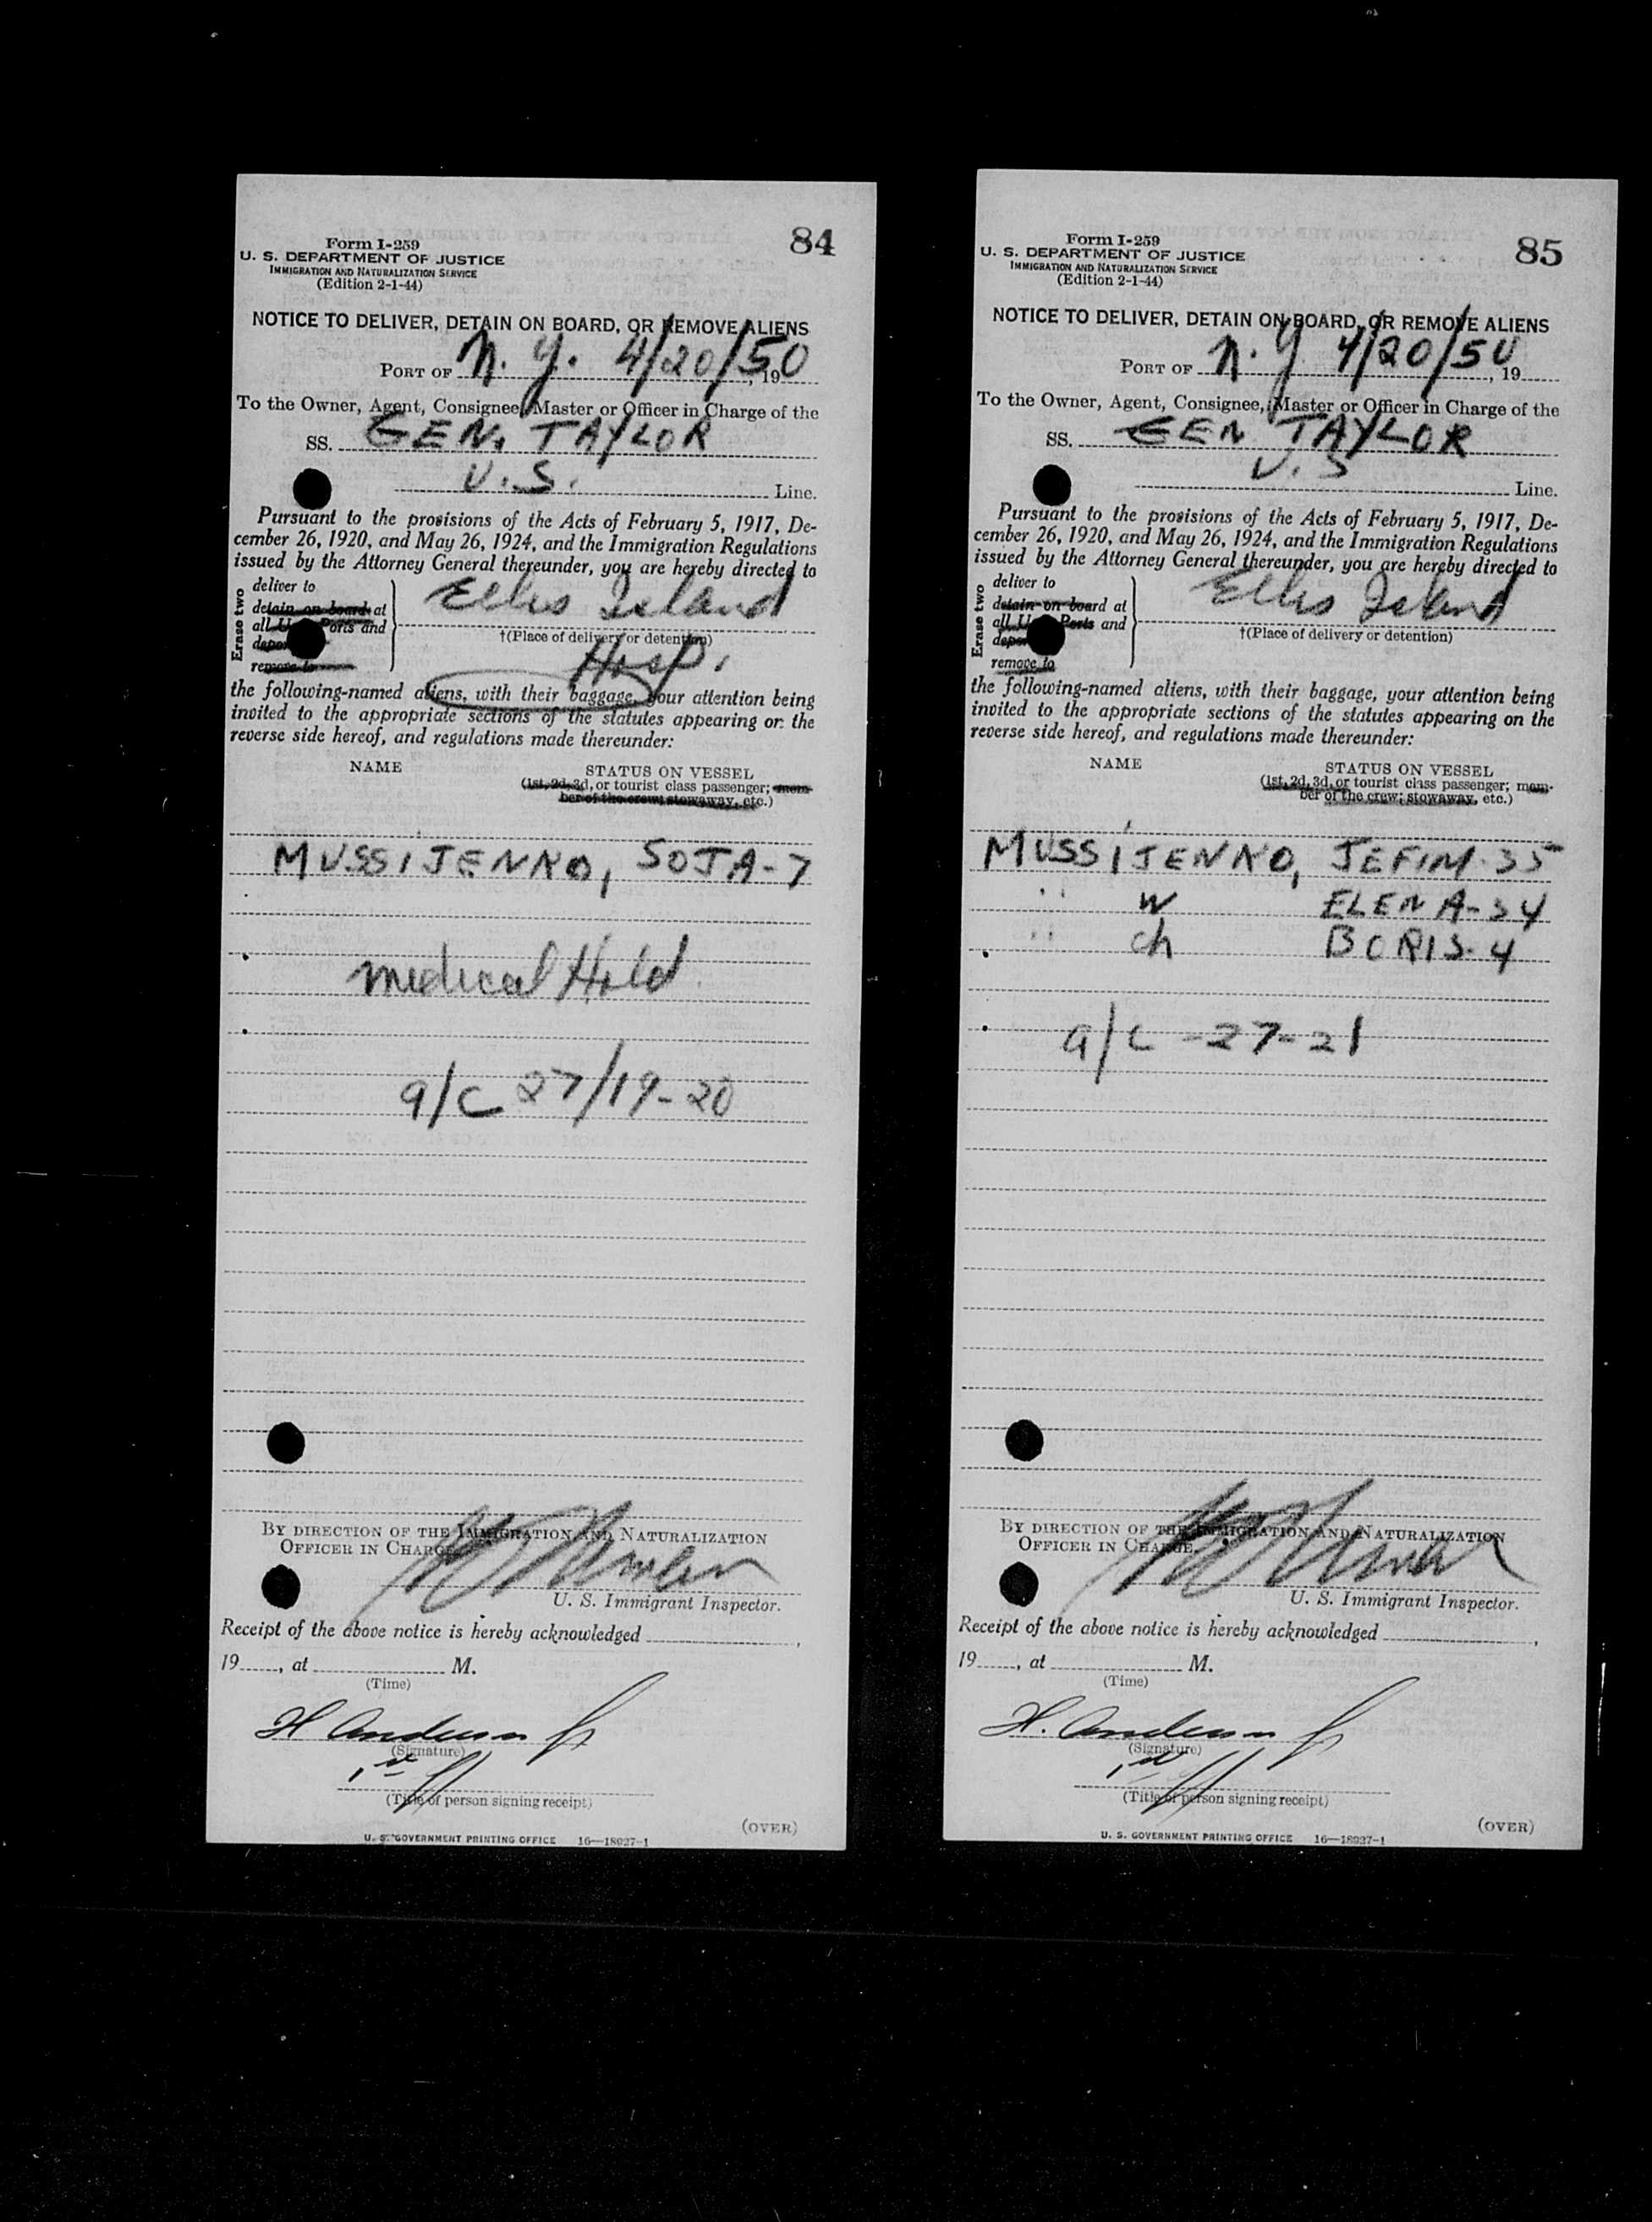 84
Form I-259
U. S. DEPARTMENT OF JUSTICE
IMMIGRATION AND NATURALIZATION SERVICE
(Edition 2-1-44)
NOTICE TO DELIVER, DETAIN ON BOARD, OR REMOVE ALIENS
PORT OF N. Y. 4/20/50, 19
To the Owner, Agent, Consignee, Master or Officer in Charge of the
SS. GEN. TAYLOR
U.S. Line.
Pursuant to the provisions of the Acts of February 5, 1917, De-
cember 26, 1920, and May 26, 1924, and the Immigration Regulations
issued by the Attorney General thereunder, you are hereby directed to
Erase two
deliver to
detain on board at
all U Ports and
depor
remove to
Ellis Island
†(Place of delivery or detention)
Hosp.
the following-named aliens, with their baggage, your attention being
invited to the appropriate sections of the statutes appearing on the
reverse side hereof, and regulations made thereunder:
NAME STATUS ON VESSEL
(1st, 2d, 3d, or tourist class passenger; mem-
ber of the crew; stowaway, etc.)
MUSSIJENKO, SOJA-7
medical Hold
a/c 27/19-20
BY DIRECTION OF THE IMMIGRATION AND NATURALIZATION
OFFICER IN CHARGE.
U. S. Immigrant Inspector.
Receipt of the above notice is hereby acknowledged ,
19 , at M.
(Time)
H Anderson Jr
(Signature)
1st
(Title of person signing receipt)
(OVER)
U. S. GOVERNMENT PRINTING OFFICE 16—18927-1
85
Form I-259
U. S. DEPARTMENT OF JUSTICE
IMMIGRATION AND NATURALIZATION SERVICE
(Edition 2-1-44)
NOTICE TO DELIVER, DETAIN ON BOARD, OR REMOVE ALIENS
PORT OF N. Y 4/20/50, 19
To the Owner, Agent, Consignee, Master or Officer in Charge of the
SS. GEN TAYLOR
U. S Line.
Pursuant to the provisions of the Acts of February 5, 1917, De-
cember 26, 1920, and May 26, 1924, and the Immigration Regulations
issued by the Attorney General thereunder, you are hereby directed to
Erase two
deliver to
detain on board at
all U Ports and
depor
remove to
Ellis Island
†(Place of delivery or detention)
the following-named aliens, with their baggage, your attention being
invited to the appropriate sections of the statutes appearing on the
reverse side hereof, and regulations made thereunder:
NAME STATUS ON VESSEL
(1st, 2d, 3d, or tourist class passenger; mem-
ber of the crew; stowaway, etc.)
MUSSIJENKO, JEFIM-35
" w ELENA-34
" ch BORIS-4
a/c -27-21
BY DIRECTION OF THE IMMIGRATION AND NATURALIZATION
OFFICER IN CHARGE.
U. S. Immigrant Inspector.
Receipt of the above notice is hereby acknowledged ,
19 , at M.
(Time)
H. Anderson Jr
(Signature)
1st
(Title of person signing receipt)
(OVER)
U. S. GOVERNMENT PRINTING OFFICE 16—18927-1